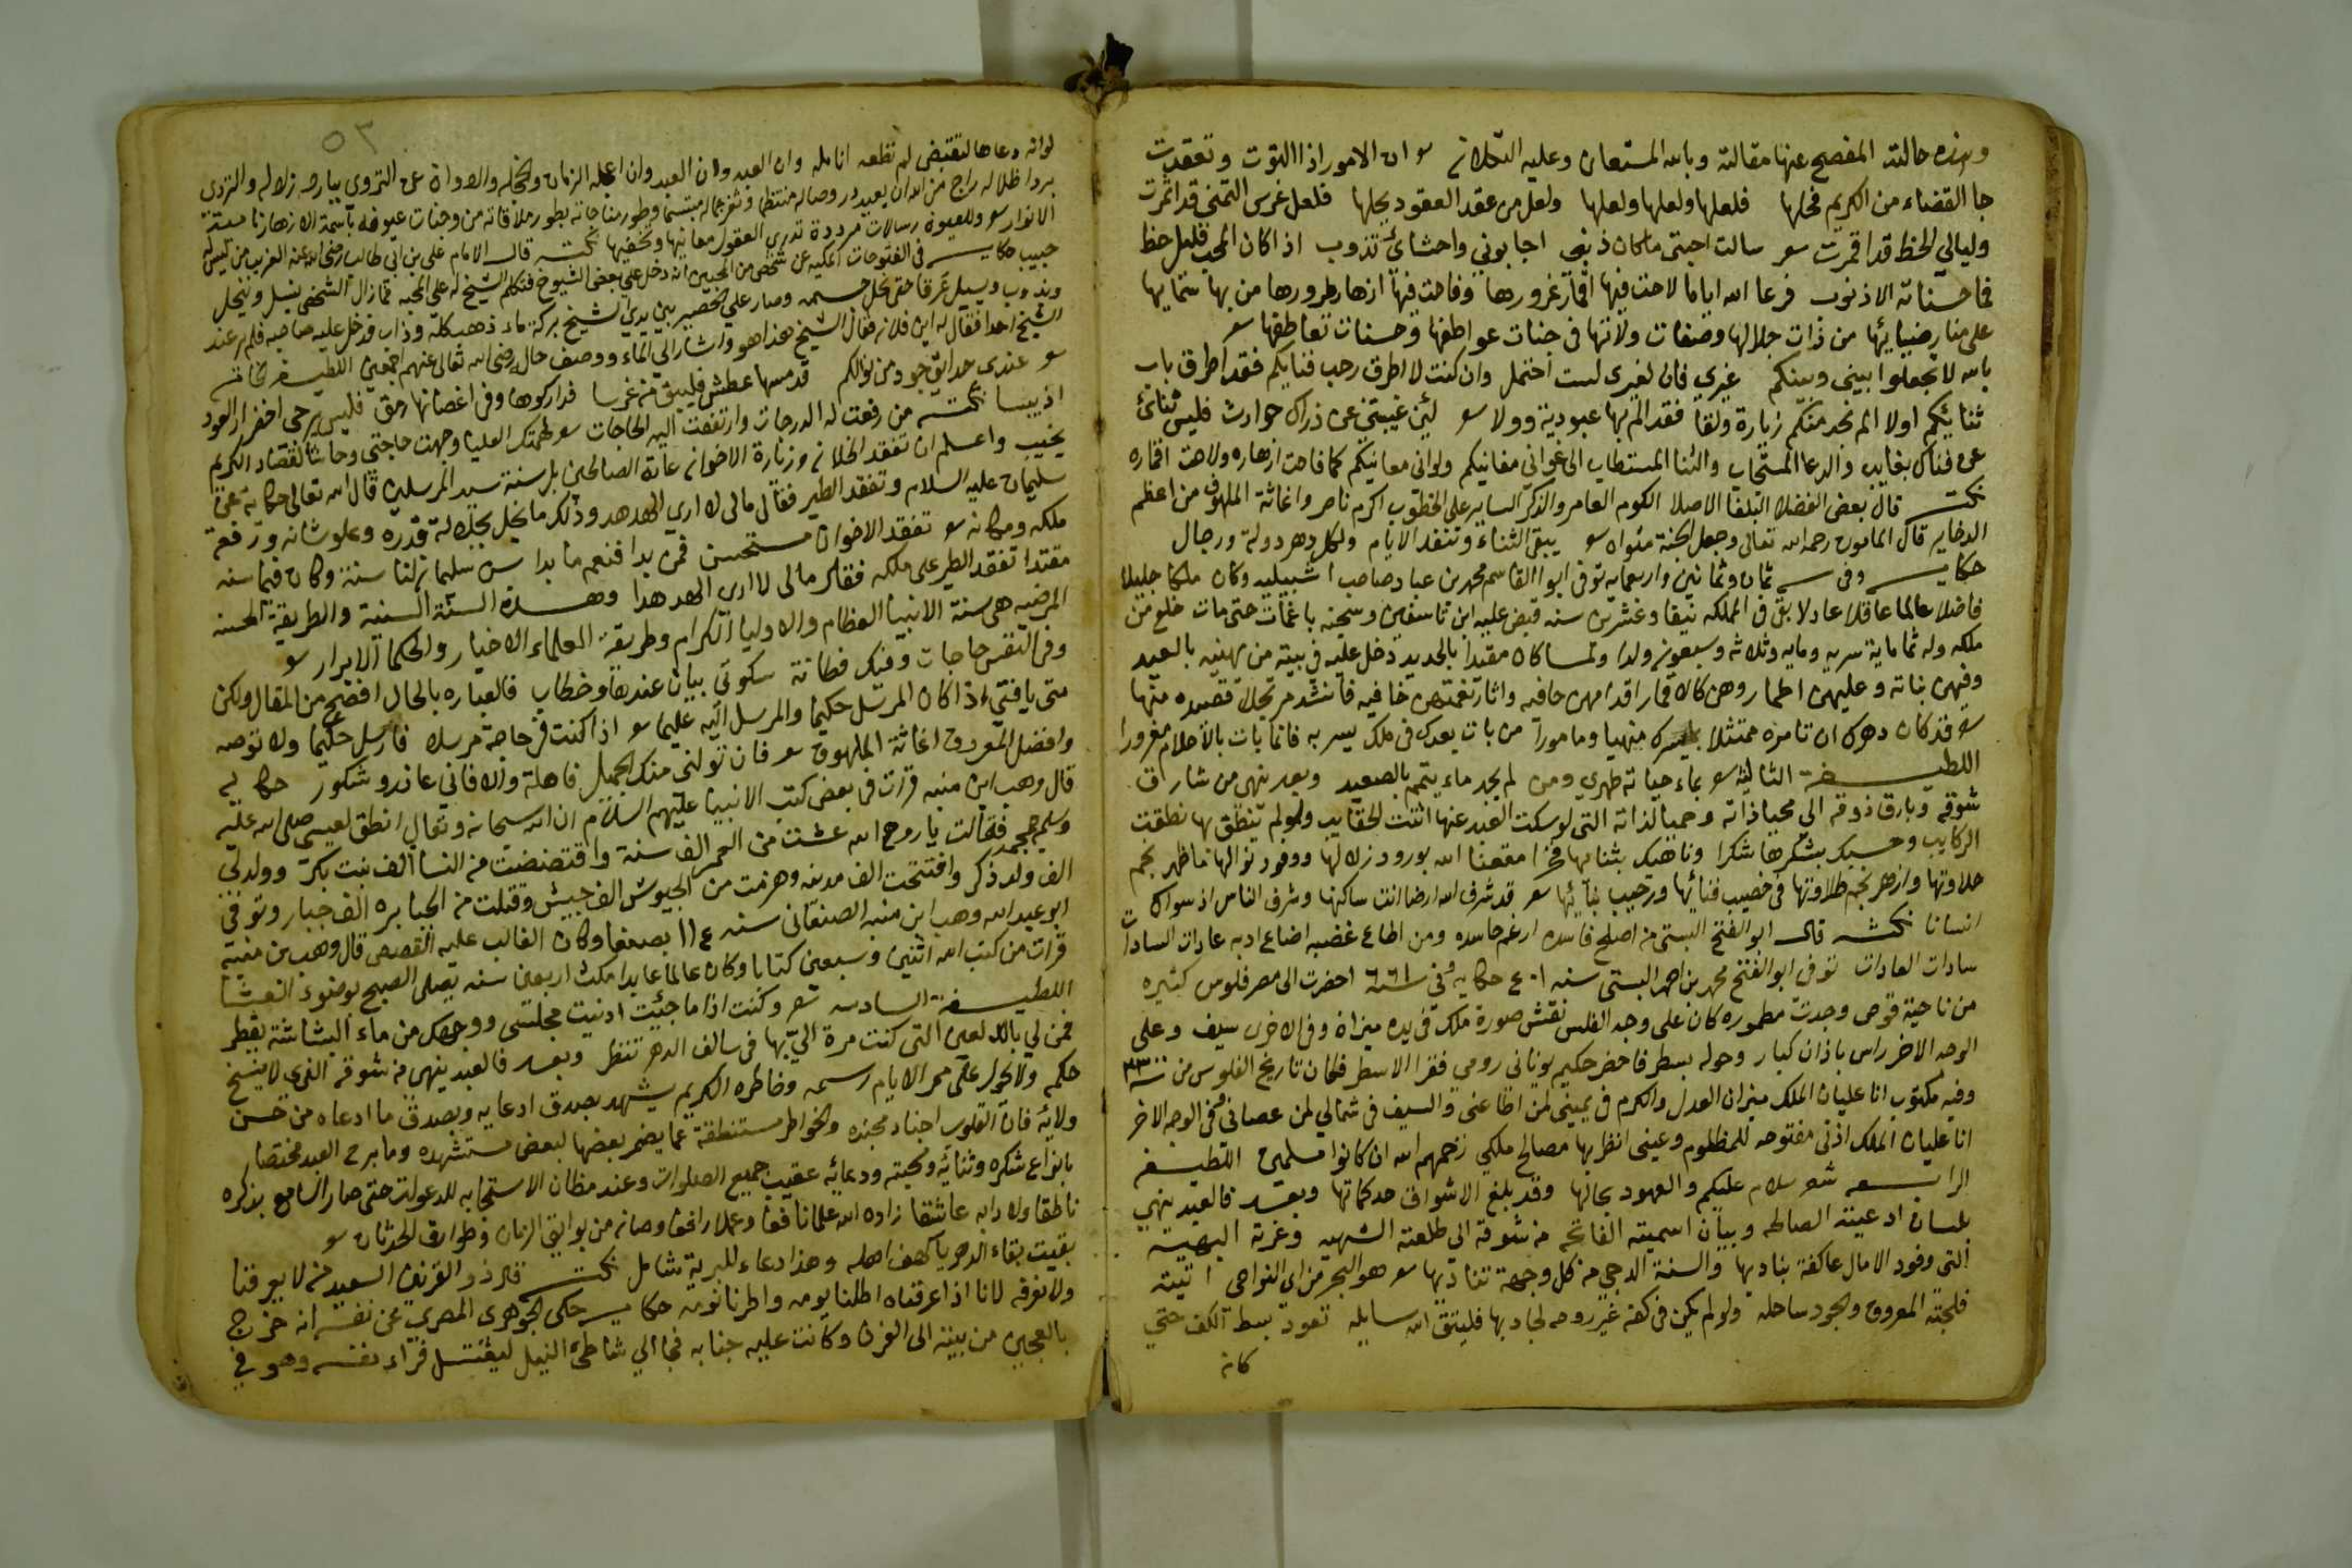 وهذه حالته المفصح عنها مقالته وبالله المستعان وعليه التكلان سو ان الامور اذا التوت وتعقدت
جا القضاء من الكريم فحلها فلعلها ولعلها ولعلها ولعل من عقد العقود يحلها فلعل غرس التمني قد اثمرت
وليالي الحظ قد اقمرت سو سالت احبتي ماكان ذنبي اجابوني واحشائي تذوب اذا كان المحب قليل حظ
فما حسناته الا ذنوب فرعا الله اياما لاحت فيها اقمار غرورها وفاحت فيها ازهار طرورها من بها سمايها
على منا رضيائها من ذات جلالها وصفات ولاتها في جنات عواطفها وحسنات تعاطفها سو
بالله لا تجعلوا بيني وبينكم غيري فان لغيري لست احتمل وان كنت لا اطرق رحب فنايكم فقد اطرق باب
ثنايكم اولا الم نجد منكم زيارة ولقا فقد الم بها عبودية وولا سو لئن غيبتني عن ذراك حوادث فليس ثنائي
عن فناك بغايب والدعا المستجاب والثنا المستطاب الى غواني مغانيكم ولواني معانيكم كما فاحت ازهاره ولاحت اقماره
نكت قال بعض الفضلا البلغا الاصلا الكوم العامر والذكر الساير على الخطوب اكرم ناصر واغاثة الملهوف من اعظم
الدخاير قال المامون رحمه الله تعالى وجعل الجنة مثواه سو يبقى الثناء وتنفد الايام ولكل دهر دولة ورجال
حكاية وفي ثمان وثمانين واربعمايه توفى ابوا القاسم محمد بن عباد صاحب اشبيليه وكان ملكا جليلا
فاضلا عالما عاقلا عادلا بقي في المملكه نيفا وعشرين سنه قبض عليه ابن تاسفين وسجنه باغمات حتى مات خلع من
ملكه وله ثماماية سريه ومايه وثلاثه وسبعون ولدا ولما كان مقيدا بالحديد دخل عليه في بيته من يهنيه بالعيد
وفيهن بناته وعليهن اطمار وهن كالاقمار اقدامهن حافيه واثار نعمتهن خافيه فانشد مرتجلا قصيده منها
سو قد كان دهرك ان تامره ممتثلا فردك منهيا ومامورا من بات بعدك في ملك يسر به فانما بات بالاحلام مغرورا
اللطيفة الثالثه سو بماء حياته طهري ومن لم يجد ماء يتمم بالصعيد وبعد ينهى من شارق
شوقه وبارق ذوقه الى محيا ذاته وحميا لذاته التي لو سكت العبد عنها اثنت الحقايب ولو لم تنطق بها نطقت
الركايب وحسبك بشكرها شكرا وناهيك بثنايها فخرا مقعنا الله بورود زلالها ووفود نوالها ما ظهر نجم
حلاوتها وازهر نجم طلاوتها في خصيب فنائها ورحيب بنائها سو قد شرف الله ارضا انت ساكنها وشرف الناس اذ سواك
انسانا نكت قال ابو الفتح البستي من اصلح فاسده ارغم حاسده ومن اطاع غضبه اضاع ادبه عادات السادات
سادات العادات توفى ابو الفتح محمد بن احمد البستي سنه ٤٠١ حكايه وفي ٦٦١ احضرت الى مصر فلوس كثيره
من ناحية قوص وجدت مطموره كان على وجه الفلس نقش صورة ملك في يده ميزان وفي الاخرى سيف وعلى
الوجه الاخر راس باذان كبار وحوله بسطر فاحضر حكيم يوناني رومي فقرا الاسطر فكان تاريخ الفلوس من ٢٣٠٠
وفيه مكتوب انا عليان الملك ميزان العدل والكرم في يميني لمن اطاعني والسيف في شمالي لمن عصاني وفي الوجه الاخر
انا عليان الملك اذني مفتوحه للمظلوم وعيني انظر بها مصالح ملكي رحمهم الله ان كانوا مسلمين اللطيفة
الرابعه شعر سلام عليكم والعهود بحالها وقد بلغ الاشواق حد كمالها وبعد فالعبد ينهي
بلسان ادعيته الصالحه وبيان اسميته الفاتحه من شوقه الى طلعته الشهيه وغرته البهيه
التي وفود الامال عاكفة بناديها والسنة الدجى من كل وجهة تناديها سو هو البحر من اي النواحي اتيته
فلجته المعروف والجود ساحله ولو لم يكن في كفه غير روحه لجاد بها فليتق الله سايله تعود بسط الكف حتى
كانه
٥٣
لوانه دعاها لتقتبض لم تطعه انامله وان العبد وان العبد وان اعله الزمان والخله والاداوة عن التروي ببارد زلاله والتردي
برداء ظلاله راج من الله ان يعيد در وصاله منتظما وثغر جماله مبتسما وطور مناجاته بطور ملاقاته من وجنات عيوفه باسمة الازهار نا
الانوار سو وللعيون رسالات مرددة تدري العقول معانيها وتخفيها نكت قال الامام علي بن ابي طالب رضي الله عنه الغريب من ليس له
حبيب حكاية في الفتوحات المكيه عن شخص من المحبين انه دخل على بعض الشيوخ فتكلم الشيخ له على المحبه فما زال الشخص ينسل وينحل
ويذوب ويسيل عرقا حتى تحلل جسمه وصار على الحصير بين يدي الشيخ بركة ماء ذهب كله وذاب فدخل عليه صاحبه فلم ير عند
الشيخ احدا فقال له اين فلان فقال الشيخ هذا هو واشار الى الماء ووصف حاله رضي الله تعالى عنهم اجمعين اللطيفه الخامسه
سو عندي حدايق جود من نوالكم قد مسها عطش فليسق من غرسا فداركوها وفي اغصانها رمق فليس يرجى اخضرار العود
اذ يبسا نكته من رفعت له الدرجات وارتفعت اليه الحاجات سو لهمتك العليا وجهت حاجتي وحاشا لقصاد الكريم
يخيب واعلم ان تفقد الخلان وزيارة الاخوان عادة الصالحين بل سنة سيد المرسلين قال الله تعالى حكاية عن
سليمان عليه السلام وتفقد الطير فقال مالي لا ارى الهدهد وذلك ما يخل بجلالة قدره وعلو شانه ورفعة
ملكه ومكانه سو تفقد الاخوان مستحسن فمن بدا فنعم ما بدا سن سليمان لنا سنة وكان فيما سنه
مقتدا تفقد الطير على ملكه فقال مالي لا ارى الهدهدا وهذه السنة السنية والطريقة الحسنه
المرضيه هي سنة الانبيا العظام والاوليا الكرام وطريقة العلماء الاخيار والحكما الابرار سو
وفي النفس حاجات وفيك فطانة سكوتي بيان عندها وخطاب فالعباره بالحال افصح من المقال ولكن
متى يا فتى اذا كان المرسل حكيما والمرسل اليه عليما سو اذا كنت في حاجة مرسلا فارسل حكيما ولا توصه
وافضل المعروف اغاثة الملهوف سو فان تولني منك الجميل فاهله والا فاني عاذر وشكور حكايه
قال وهب ابن منبه قرات في بعض كتب الانبيا عليهم السلام ان الله سبحانه وتعالى انطق لعيسى صلى الله عليه
وسلم جمجمه فقالت يا روح الله عشت من العمر الف سنة واقتضضت من النسا الف بنت بكر وولد لي
الف ولد ذكر وافتتحت الف مدينه وهزمت من الجيوش الف جيش وقتلت من الجبابره الف جبار وتوفي
ابو عبد الله وهب ابن منبه الصنعاني سنه ١١٤ بصنعا وكان الغالب عليه القصص قال وهب بن منبه
قرات من كتب الله اثنين وسبعين كتابا وكان عالما عابدا مكث اربعين سنه يصلى الصبح بوضوء العشا
اللطيفة السادسه شعر وكنت اذا ما جئت ادنيت مجلسي ووجهك من ماء البشاشة يقطر
فمن لي بالك لعين التي كنت مرة الي بها في سالف الدهر تنظر وبعد فالعبد ينهى من شوقه الذي لا ينسخ
حكمه ولا يحول على ممر الايام رسمه وخاطره الكريم يشهد بصدق ادعايه ويصدق ما ادعاه من حسن
ولائه فان القلوب اجناد مجنده والخواطر مستنطقة عما يضمر بعضها لبعض مستشهده وما برح العبد مختصا
بانواع شكره وثنائه ومحبته ودعائه عقيب جميع الصلوات وعند مظان الاستجابه للدعوات حتى صار السامع بذكره
ناطقا ولادابه عاشقا زاده الله علما نافعا وعملا رافعا وصانه من بوايق الزمان وطوارق الحدثان سو
بقيت بقاء الدهر يا كهف اهله وهذا دعاء للبرية شامل نكت قال ذو القرنين السعيد من لا يعرفنا
ولا نعرفه لانا اذا عرفناه اطلنا يومه واطرنا نومه حكاية حكى الجوهري المصري عن نفسه انه خرج
بالعجين من بيته الى الفرن وكانت عليه جنابه فجا الى شاطئ النيل ليغتسل فراء نفسه وهو في